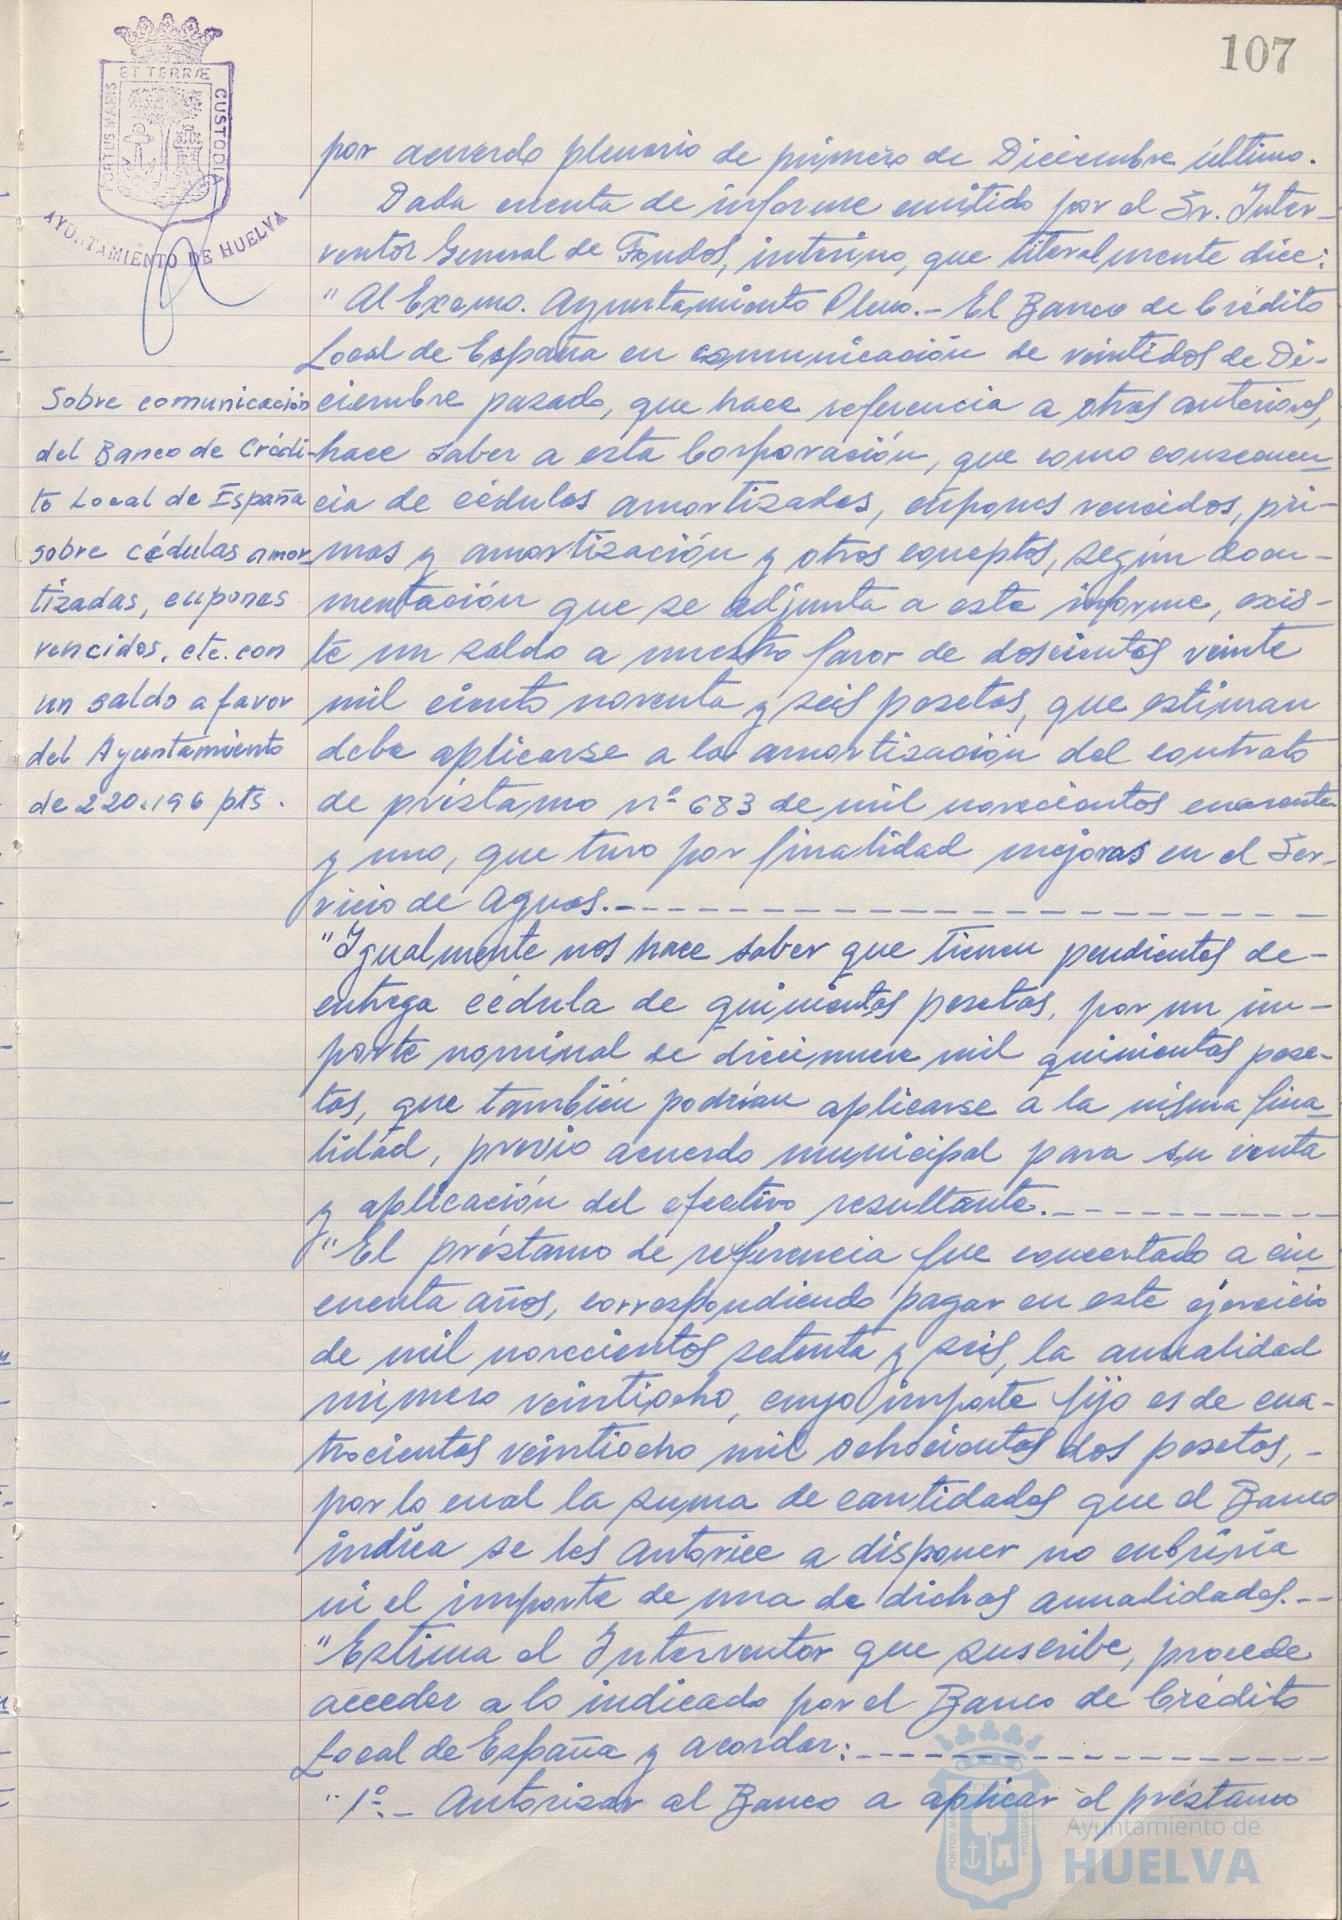 107
ET TERRÆ
PORTUS MARIS
CUSTODIA
AYUNTAMIENTO DE HUELVA
Sobre comunicación
del Banco de Crédi-
to Local de España
sobre cédulas amor-
tizadas, cupones
vencidos, etc. con
un saldo a favor
del Ayuntamiento
de 220.196 pts.
por acuerdo plenario de primero de Diciembre último.
Dada cuenta de informe emitido por el Sr. Inter-
ventor General de Fondos, interino, que literalmente dice:
"Al Excmo. Ayuntamiento Pleno.- El Banco de Crédito
Local de España en comunicación de veintidos de Di-
ciembre pasado, que hace referencia a otras anteriores,
hace saber a esta Corporación, que como consecuen-
cia de cédulas amortizadas, cupones vencidos, pri-
mas y amortización y otros conceptos, según docu-
mentación que se adjunta a este informe, exis-
te un saldo a nuestro favor de doscientas veinte
mil ciento noventa y seis pesetas, que estiman
debe aplicarse a la amortización del contrato
de préstamo nº 683 de mil novecientos cuarenta
y uno, que tuvo por finalidad mejoras en el Ser-
vicio de Aguas.-
"Igualmente nos hace saber que tienen pendientes de-
entrega cédula de quinientas pesetas, por un im-
porte nominal de diecinueve mil quinientas pese-
tas, que también podrían aplicarse a la misma fina-
lidad, previo acuerdo municipal para su venta
y aplicación del efectivo resultante.
"El préstamo de referencia fue concertado a cin-
cuenta años, correspondiendo pagar en este ejercicio
de mil novecientos setenta y seis, la anualidad
número veintiocho, cuyo importe fijo es de cua-
trocientas veintiocho mil ochocientas dos pesetas,-
por lo cual la suma de cantidades que el Banco
indica se les autorice a disponer no cubriría
ni el importe de una de dichas anualidades.--
"Estima el Interventor que suscribe, procede
acceder a lo indicado por el Banco de Crédito
Local de España y acordar:
"1º.- Autorizar al Banco a aplicar el préstamo
Ayuntamiento de
HUELVA